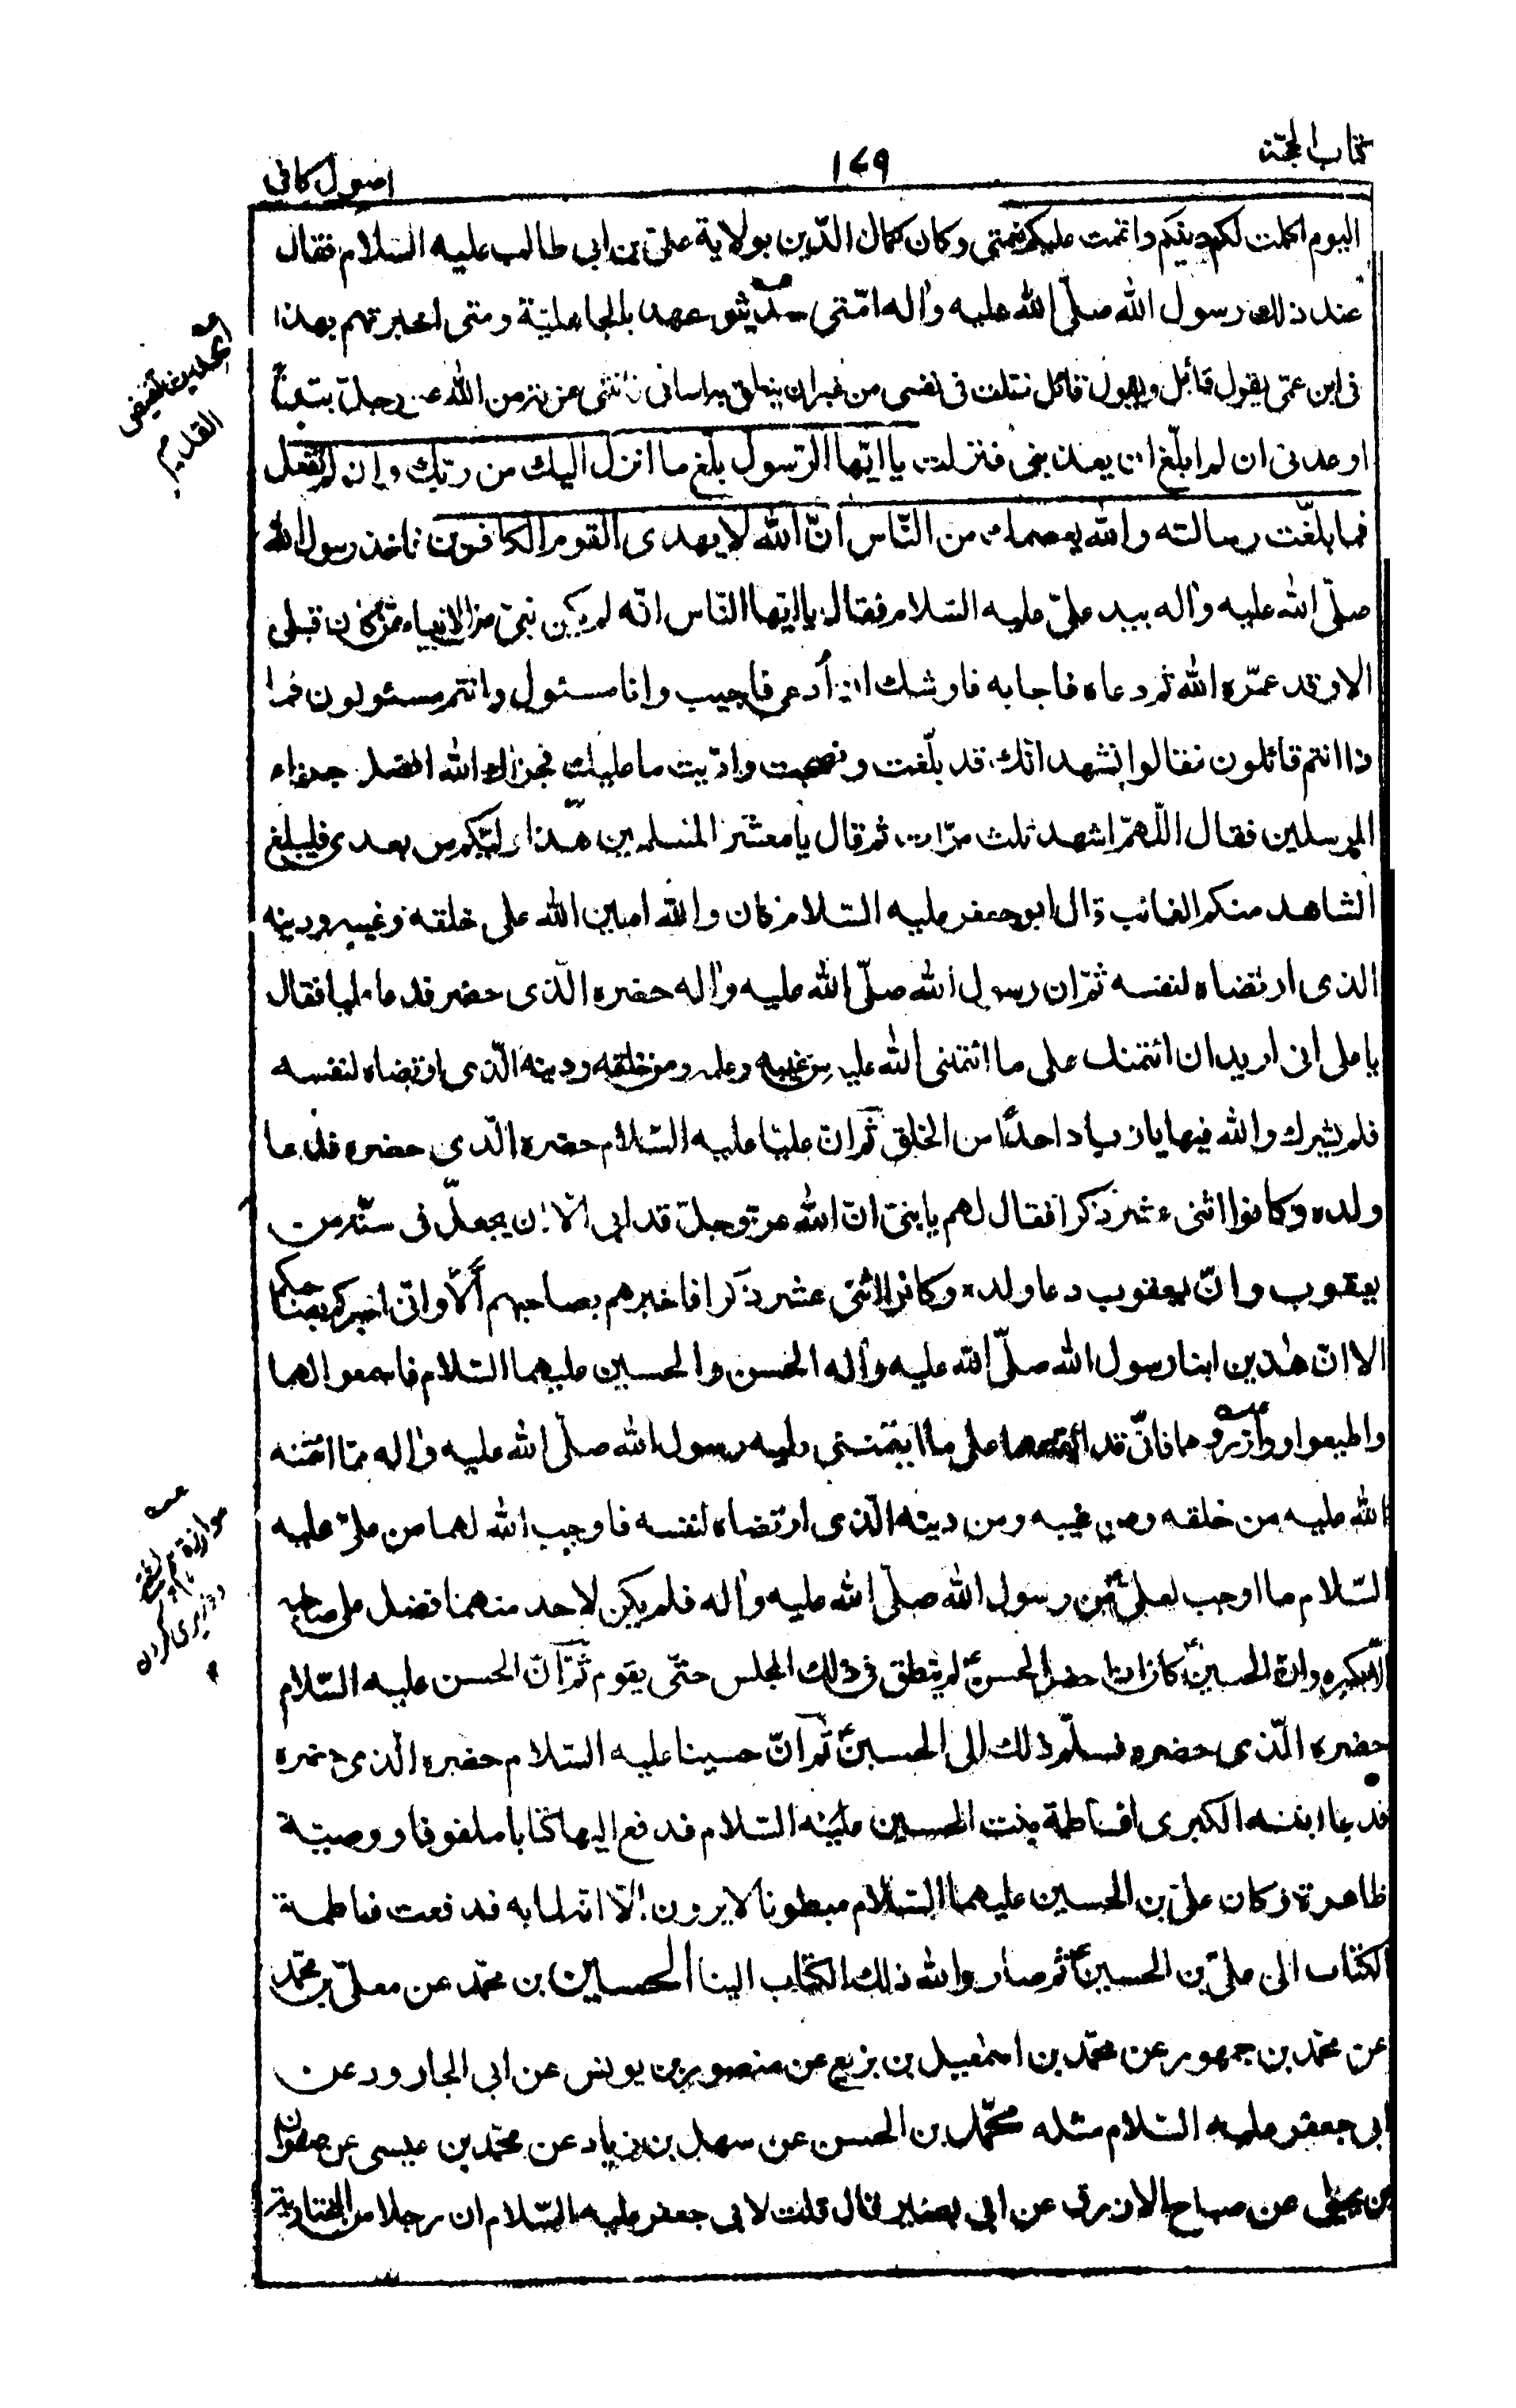 كتاب الحجّة
١٤٩
اصول كافى
اليوم اكملت لكم دينكم واتممت عليكم نعمتى وكان كمال الدّين بولاية علىّ بن ابى طالب عليه السّلام فقال
عند ذلك رسول الله صلّى الله عليه واله امّتى حديثو عهد بالجاهليّة ومتى اخبرتهم بهذا
فى ابن عمّى يقول قائل ويقول قائل فقلت فى نفسى من غير ان ينطق به لسانى فاتتنى عزيمة من الله عز وجلّ بتلة
اوعدنى ان لم ابلّغ ان يعذّبنى فنزلت يا ايّها الرّسول بلّغ ما انزل اليك من ربّك وان لم تفعل
فما بلّغت رسالته والله يعصمك من النّاس انّ الله لا يهدى القوم الكافرين فاخذ رسول الله
صلّى الله عليه واله بيد علىّ عليه السّلام فقال يا ايّها النّاس انّه لم يكن نبىّ من الانبياء ممّن كان قبلى
الا وقد عمّره الله ثم دعاه فاجابه فاوشك ان أدعى فاجيب وانا مسئول وانتم مسئولون فما
ذا انتم قائلون فقالوا نشهد انّك قد بلّغت ونصحت وادّيت ما عليك فجزاك الله افضل جزاء
المرسلين فقال اللّهمّ اشهد ثلث مرّات ثم قال يا معشر المسلمين هذا وليّكم من بعدى فليبلغ
الشاهد منكم الغائب قال ابو جعفر عليه السّلام كان والله امين الله على خلقه وغيبه ودينه
الذى ارتضاه لنفسه ثمّ ان رسول الله صلّى الله عليه واله حضره الّذى حضر فدعا عليا فقال
يا على انى اريد ان ائتمنك على ما ائتمننى الله عليه من غيبه وعلمه ومن خلقه ودينه الّذى ارتضاه لنفسه
فلم يشرك والله فيها يا زياد احدًا من الخلق ثمّ ان عليّا عليه السّلام حضره الّذى حضره فدعا
ولده وكانوا اثنى عشر ذكرا فقال لهم يا بنىّ انّ الله عزّ وجلّ قد ابى الّا ان يجعل فىّ سنّة من
يعقوب وانّ يعقوب دعا ولده وكانوا اثنى عشر ذكرا فاخبرهم بصاحبهم ألا وانّى اخبركم بصاحبكم
الا انّ هذين ابنا رسول الله صلّى الله عليه واله الحسن والحسين عليهما السّلام فاسمعوا لهما
واطيعوا ووازروهما فانّى قد ائتمنتهما على ما ائتمننى عليه رسول الله صلّى الله عليه واله ممّا ائتمنه
الله عليه من خلقه ومن غيبه ومن دينه الّذى ارتضاه لنفسه فاوجب الله لهما من علىّ عليه
السّلام ما اوجب لعلىّ من رسول الله صلّى الله عليه واله فلم يكن لاحد منهما فضل على صاحبه
الّا بكبره وانّ الحسين كان اذا حضر الحسن لم ينطق فى ذلك المجلس حتّى يقوم ثمّ انّ الحسن عليه السّلام
حضره الّذى حضره فسلّم ذلك الى الحسين ثمّ انّ حسينا عليه السّلام حضره الّذى حضره
فدعا ابنته الكبرى فاطمة بنت الحسين عليه السّلام فدفع اليها كتابا ملفوفا ووصيّة
ظاهرة وكان علىّ بن الحسين عليهما السّلام مبطونا لا يرون الّا انّه لما به فدفعت فاطمة
الكتاب الى علىّ بن الحسين ثم صار والله ذلك الكتاب الينا الحسين بن محمّد عن معلّى بن محمّد
عن محمّد بن جمهور عن محمّد بن اسمعيل بن بزيع عن منصور بن يونس عن ابى الجارود عن
ابى جعفر عليه السّلام مثله محمّد بن الحسن عن سهل بن زياد عن محمّد بن عيسى عن صفوان
بن يحيى عن صباح الازرق عن ابى بصير قال قلت لابى جعفر عليه السّلام ان رجلا من المختارية
القديم
موازرة
وزيرى كردن